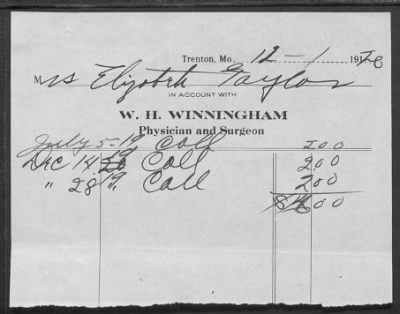 Trenton, Mo., 12-1 1920
Mrs Elizabeth Taylor
IN ACCOUNT WITH
W. H. WINNINGHAM
Physician and Surgeon
July 5-19 Call 200
Dec 14 19 Call 200
" 28 19, Call 200
00